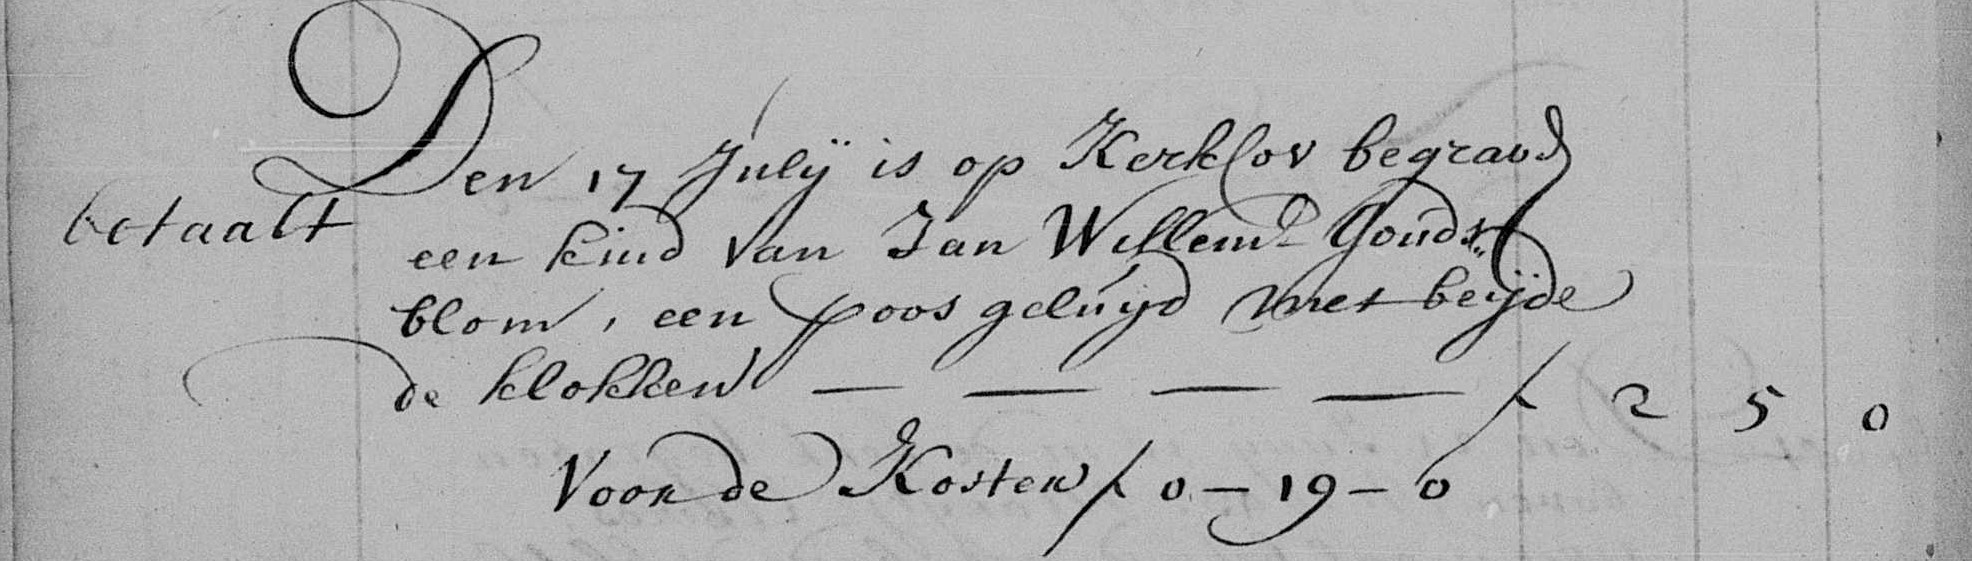 Den 17 Julij is op Kerkhov begravd
betaalt een kind van Jan Willemsz Gouds
blom, een poos geluijd met beijde
de klokken — — — — ƒ 2 5 0
Voor de Kosten ƒ 0 - 19 - 0